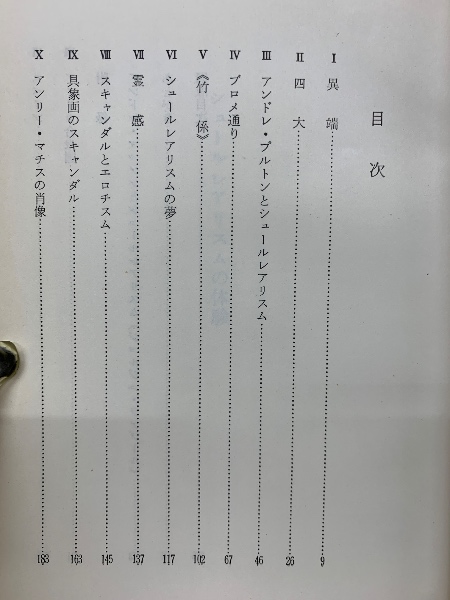 目次
I 異端 9
II 四大 26
III アンドレ・ブルトンとシュールレアリスム 46
IV ブロメ通り 67
V 《竹係》 102
VI シュールレアリスムの夢 117
VII 霊感 137
VIII スキャンダルとエロチスム 145
IX 具象画のスキャンダル 163
X アンリー・マチスの肖像 183